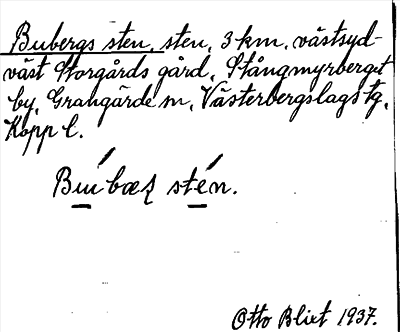 Bubergs sten, sten, 3 km, västsyd-
väst Storgårds gård, Stångmyrberget
by, Grangärde sn, Västerbergslags tg,
Kopp l.
sten.
Otto Blixt 1937.